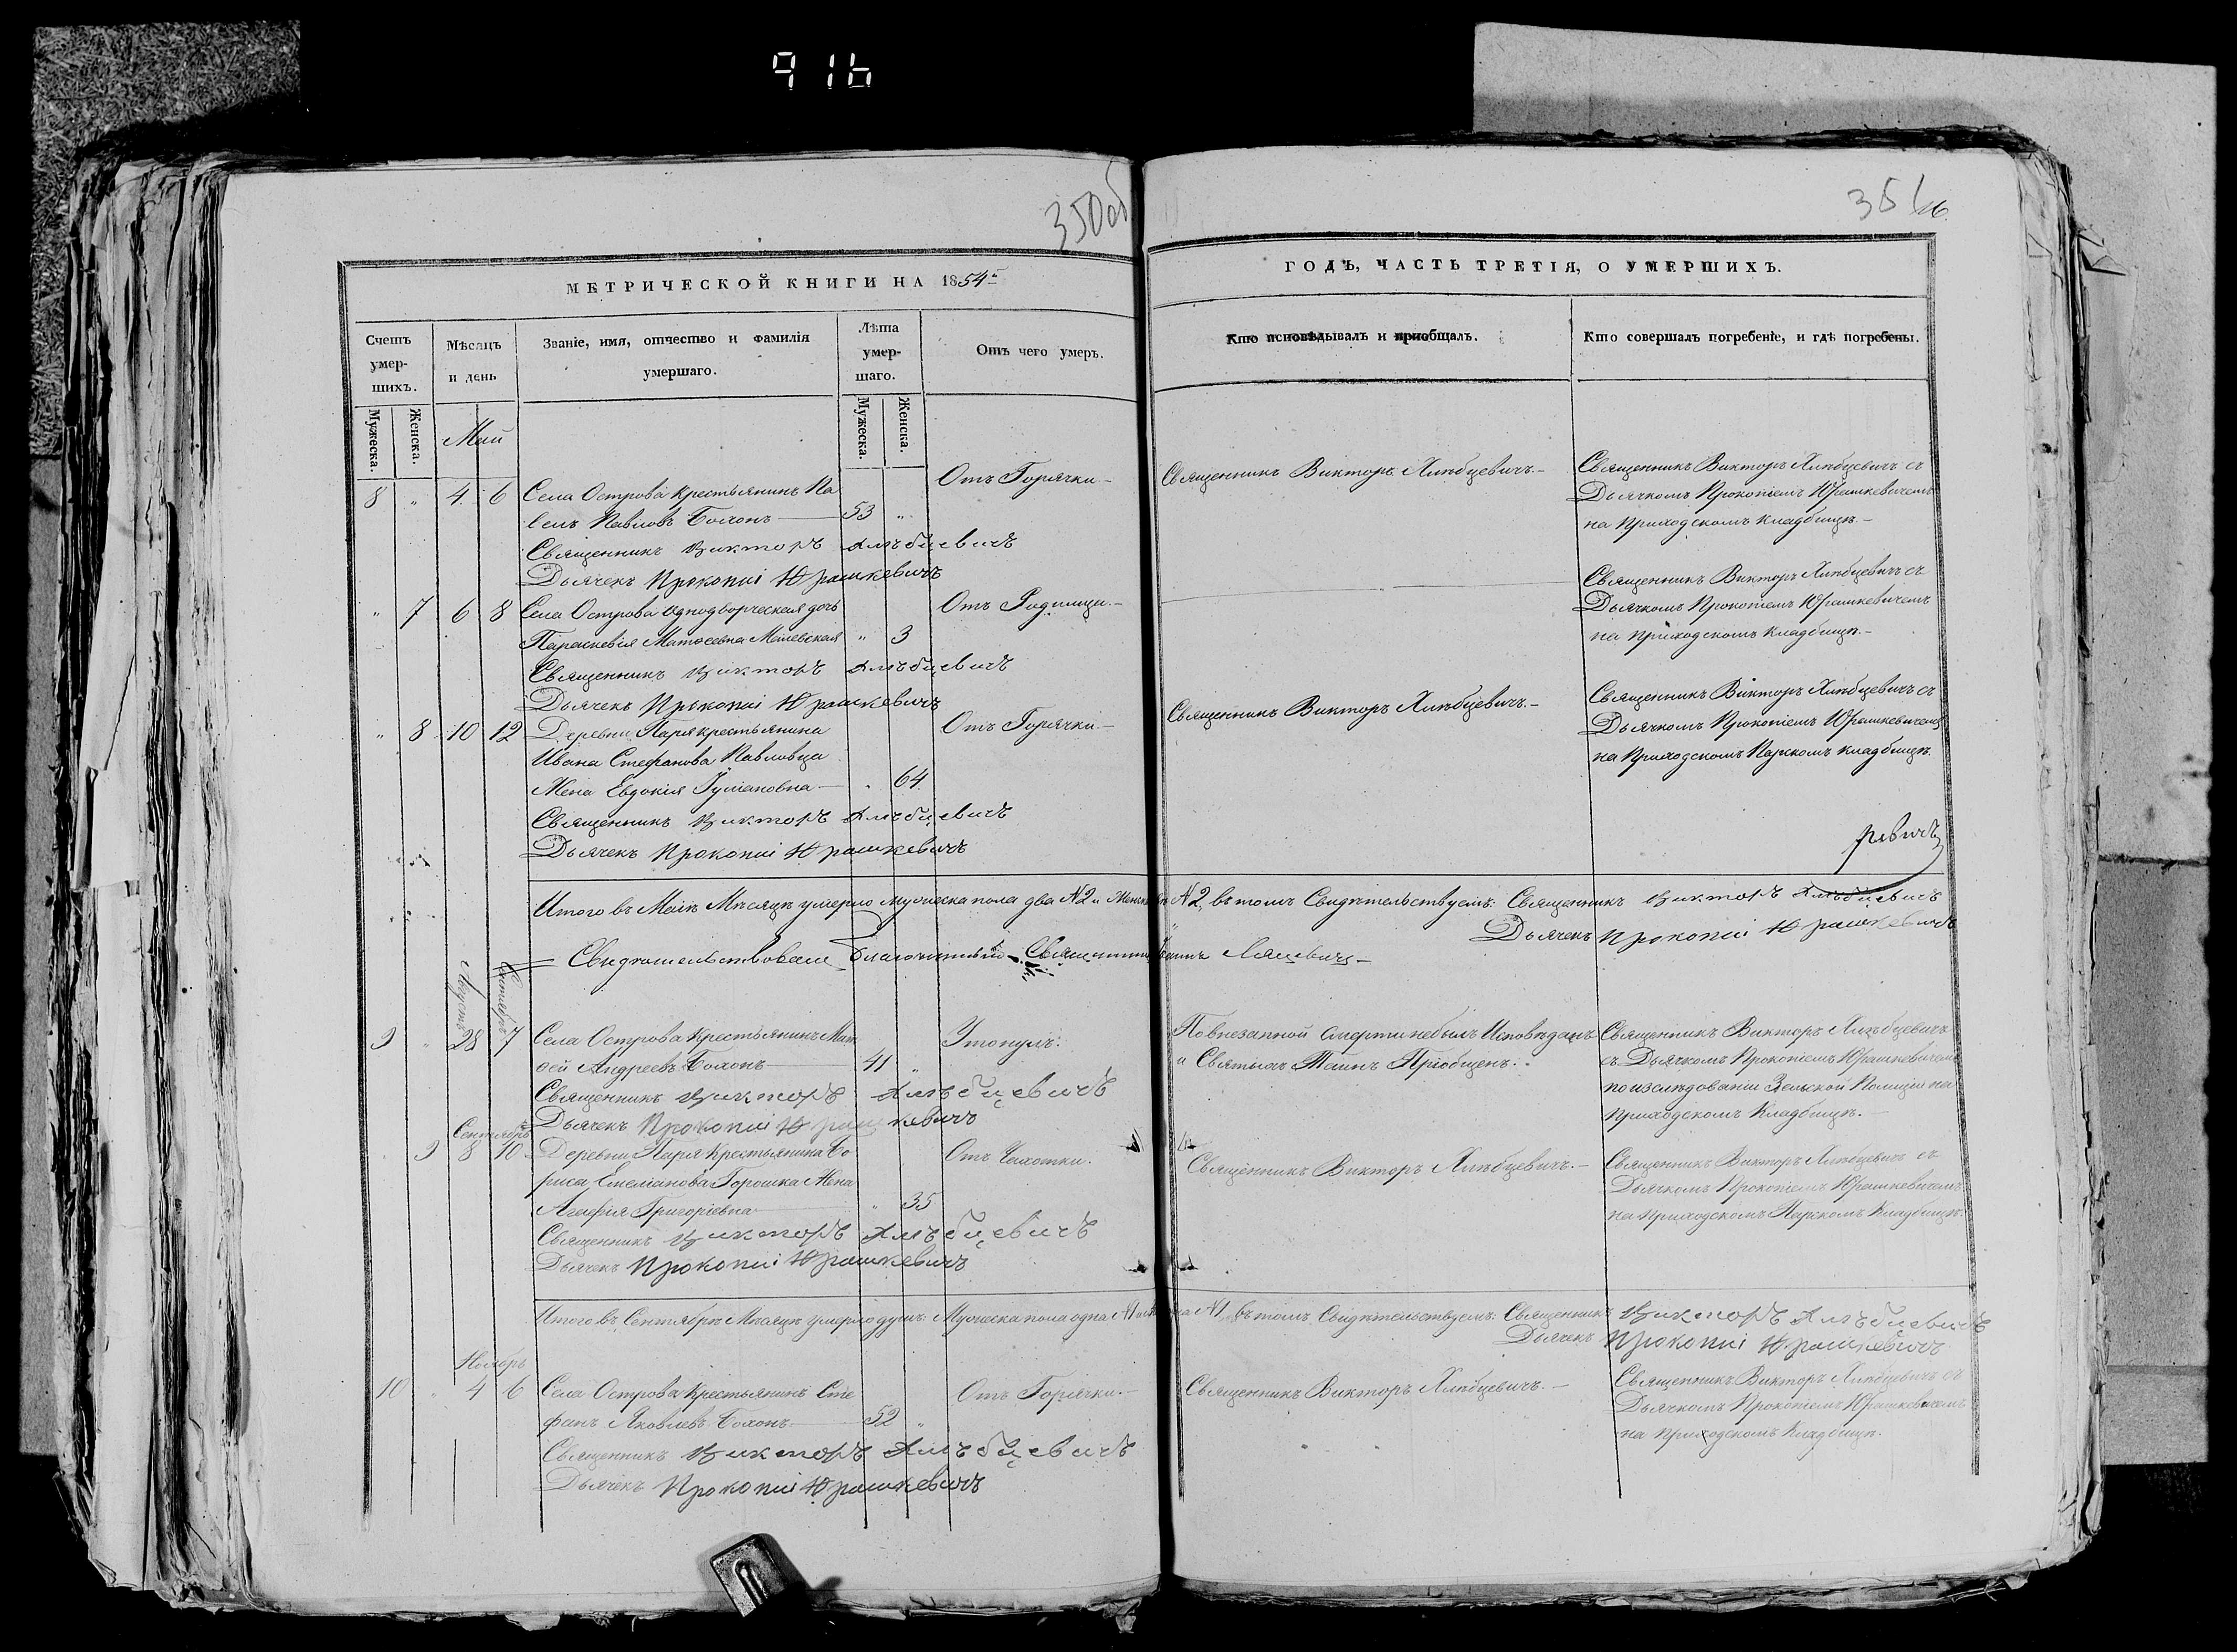 916
350об
351
МЕТРИЧЕСКОЙ КНИГИ НА 1854й
ГОДЪ, ЧАСТЬ ТРЕТІЯ, О УМЕРШИХЪ.
Счетъ умер-шихъ.
Мѣсяцъ и день
Званіе, имя, отчество и фамилія умершаго.
Лѣта умер-шаго.
Отъ чего умеръ.
Кто исповѣдывалъ и пріобщалъ.
Кто совершалъ погребеніе, и гдѣ погребены.
Мужеска.
Женска.
Мужеска.
Женска.
Май
8 " 4 6 Села Острова Крестьянинъ Па
велъ Павловъ Бохонъ 53 "
Отъ Горячки
Священникъ Викторъ Хлѣбцевичъ
Священникъ Викторъ Хлѣбцевичъ съ
Дьячкомъ Прокопіемъ Юрашкевичемъ
на Приходскомъ кладбищѣ.
Священникъ Викторъ Хлѣбцевичъ
Дьячекъ Прокопій Юрашкевичъ
" 7 6 8 Села Острова однодворческая дочь
Параскевія Матѳеевна " 3
Отъ Родимца.
Священникъ Викторъ Хлѣбцевичъ съ
Дьячкомъ Прокопіемъ Юрашкевичемъ
на приходскомъ кладбищѣ.
Священникъ Викторъ Хлѣбцевичъ
Дьячекъ Прокопій Юрашкевичъ
" 8 10 12 Деревни Паря крестьянина
Ивана Стефанова Павловца
Жена Евдокія Іуліановна " 64
Отъ Горячки
Священникъ Викторъ Хлѣбцевичъ.
Священникъ Викторъ Хлѣбцевичъ съ
Дьячкомъ Прокопіемъ Юрашкевичемъ
на Приходскомъ Парскомъ кладбищѣ.
Священникъ Викторъ Хлѣбцевичъ
Дьячекъ Прокопій Юрашкевичъ
Итого въ Маѣ Мѣсяцѣ умерло мужеска пола два №2 и Женска №2, въ томъ Свидѣтельствуемъ: Священникъ Викторъ Хлѣбцевичъ
Дьячекъ Прокопій Юрашкевичъ
Свидѣтельствовалъ Благочинный Священникъ
Августъ
Сентябрь
9 " 28 7 Села Острова Крестьянинъ Мат
ѳей Андреевъ Бохонъ 41 "
Утонулъ.
По внезапной смерти небылъ Исповѣданъ
и Святыхъ Таинъ Пріобщенъ.
Священникъ Викторъ Хлѣбцевичъ
съ Дьячкомъ Прокопіемъ Юрашкевичемъ
по изслѣдованіи Земской Полиціи на
Приходскомъ Кладбищѣ.
Священникъ Викторъ Хлѣбцевичъ
Дьячекъ Прокопій Юрашкевичъ
Сентябрь
9 8 10 Деревни Паря Крестьянина Бо
риса Емеліанова Горошка Жена
Агафія Григоріевна " 35
Отъ Чахотки.
Священникъ Викторъ Хлѣбцевичъ.
Священникъ Викторъ Хлѣбцевичъ съ
Дьячкомъ Прокопіемъ Юрашкевичемъ
на Приходскомъ Парскомъ Кладбищѣ.
Священникъ Викторъ Хлѣбцевичъ
Дьячекъ Прокопій Юрашкевичъ
Итого въ Сентябрѣ Мѣсяцѣ умерло душъ: Мужеска пола одна №1 №1, въ томъ Свидѣтельствуемъ: Священникъ Викторъ Хлѣбцевичъ
Дьячекъ Прокопій Юрашкевичъ
Ноябрь
10 " 4 6 Села Острова Крестьянинъ Сте
фанъ Яковлевъ Бохонъ 52 "
Отъ Горячки.
Священникъ Викторъ Хлѣбцевичъ.
Священникъ Викторъ Хлѣбцевичъ съ
Дьячкомъ Прокопіемъ Юрашкевичемъ
на Приходскомъ Кладбищѣ.
Священникъ Викторъ Хлѣбцевичъ
Дьячекъ Прокопій Юрашкевичъ